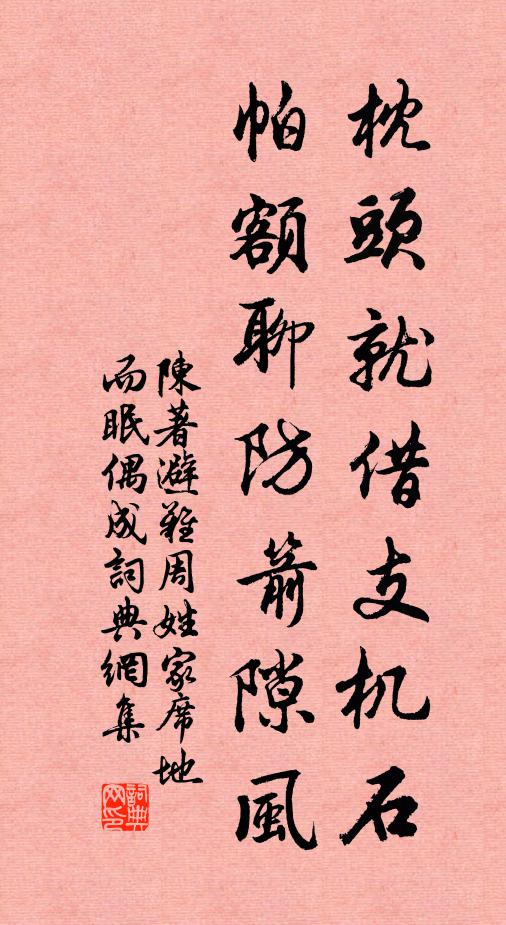 枕頭就借支机石
帕額聊防箭隙風
陳著避難周姓家席地
而眠偶成詞典網集
詞典網印